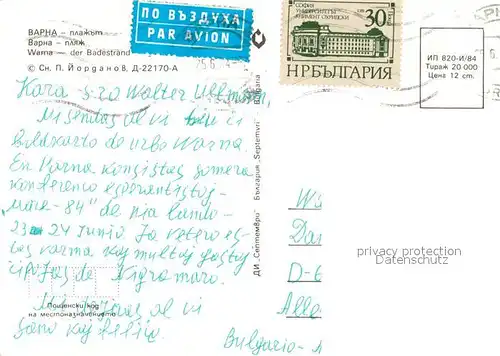 ВАРНА – плажът
Варна – пляж
Warna – der Badestrand
© Сн. П. Йорданов, Д-22170-А
ПО ВЪЗДУХА
PAR AVION
СОФИЯ
УНИВЕРСИТЕТЪТ
КЛИМЕНТ ОХРИДСКИ
30
НР БЪЛГАРИЯ
ИП 820-И/84
Тираж 20 000
Цена 12 ст.
Kara s-ro Walter
Mi sendas al vi ĉi
Bildkarto de urbo Warna.
En Varna konsistas somera
konferenco esperantistoj
„Mare-84" de nia lando
23 24 Junio. La vetero es-
tas varma kaj multaj gastoj
de Nigra maro.
Mi deziras al vi
sano kaj feliĉo.
ДИ „Септември" България „Septemvri" Bulgaria
Пощенски код
на местоназначението
W
Da
D-6
Alle
Bulgario-
privacy protection
Datenschutz